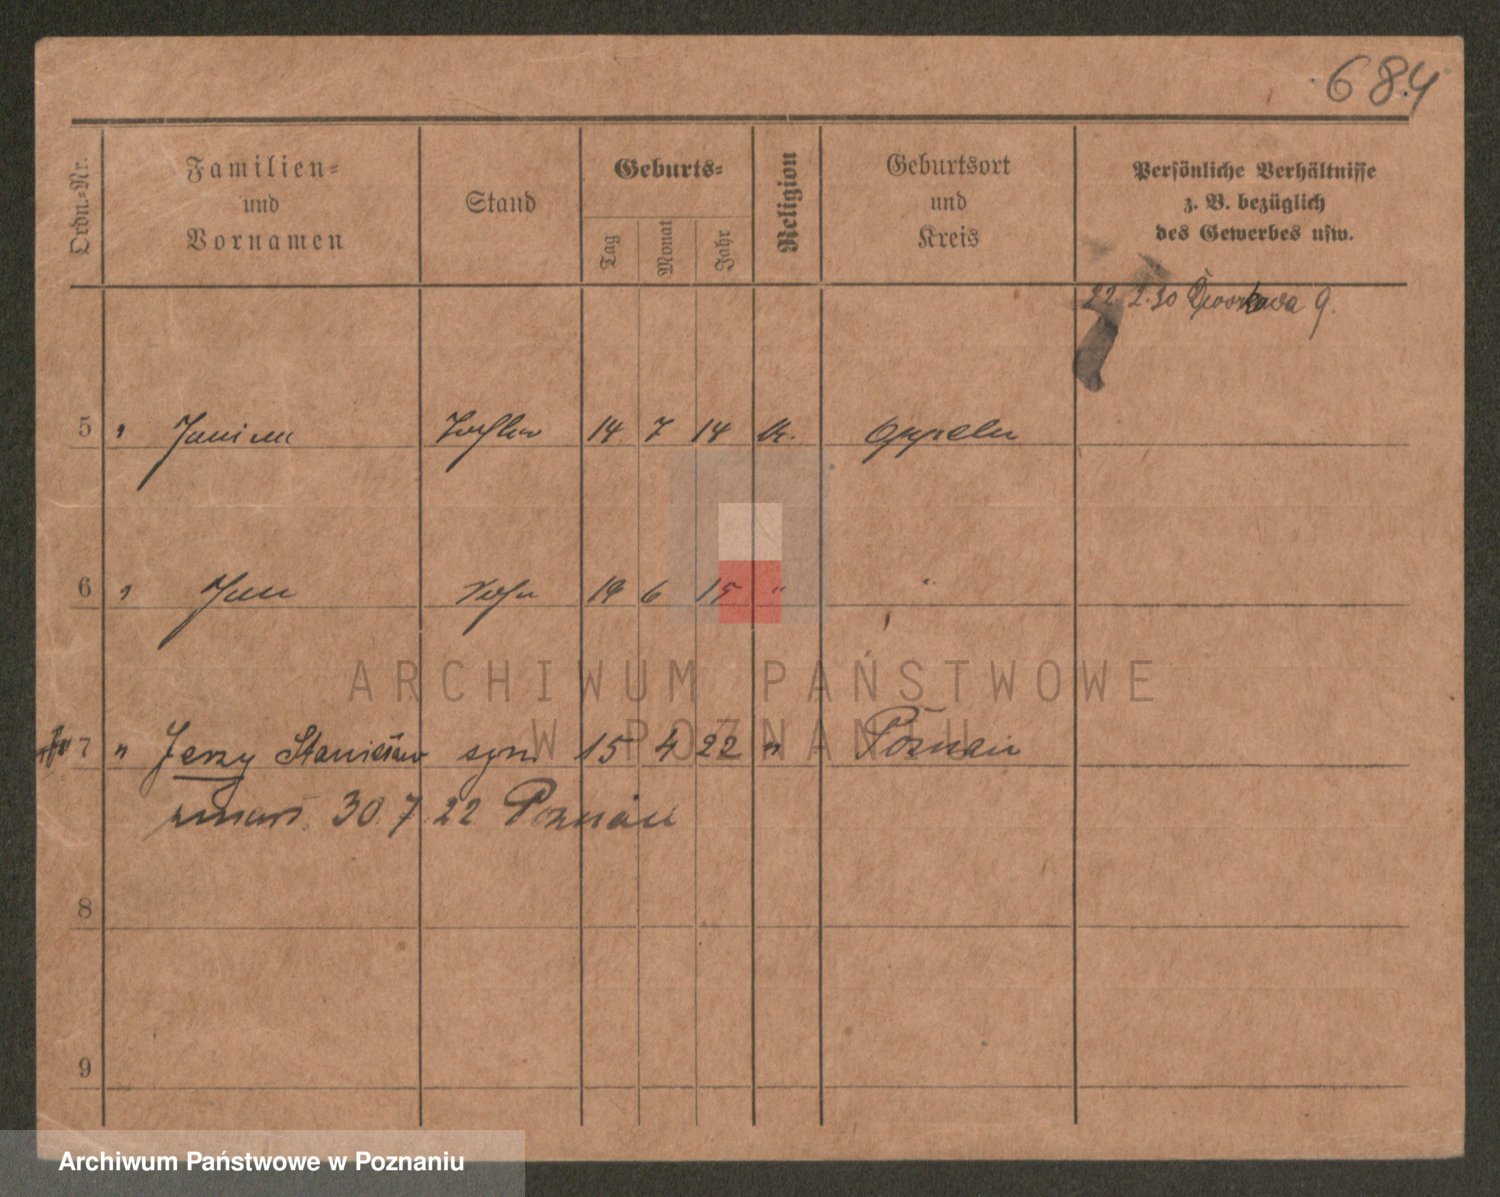 684
Ordn.=Nr.
Familien=
und
Vornamen
Stand
Geburts=
Tag Monat Jahr
Religion
Geburtsort
und
Kreis
Persönliche Verhältnisse
z. B. bezüglich
des Gewerbes usw.
22. 2. 30 9.
5 " Janina Tochter 14 7 14 Oppeln
6 " Jan Sohn 19 6 15 " "
7 " Jerzy Stanisław syn 15 4 22 " Poznań
zmarł. 30. 7. 22 Poznań
8
9
ARCHIWUM PAŃSTWOWE
W POZNANIU
Archiwum Państwowe w Poznaniu